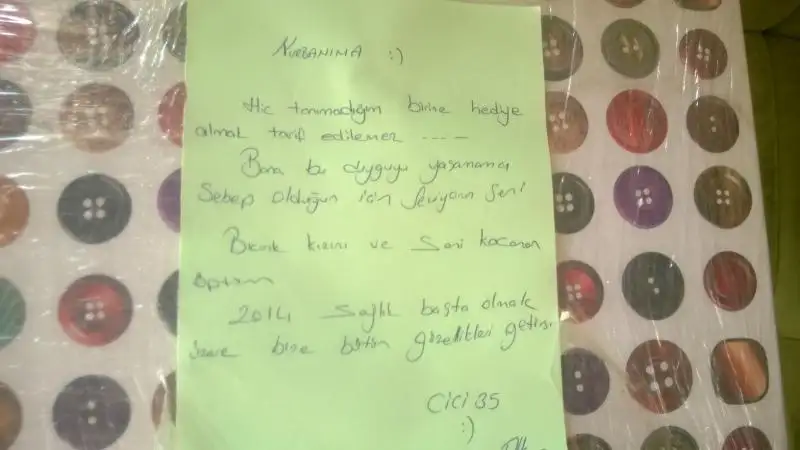 NURBANIMA :)
Hiç tanımadığın birine hediye
almak tarif edilemez ----
Bana bu duyguyu yaşamama
Sebep olduğun için Seviyorum Seni
Biricik kızını ve Seni kocaman
öptüm
2014 Sağlık başta olmak
üzere bize bütün güzellikleri getirsin
CiCi 35
:)